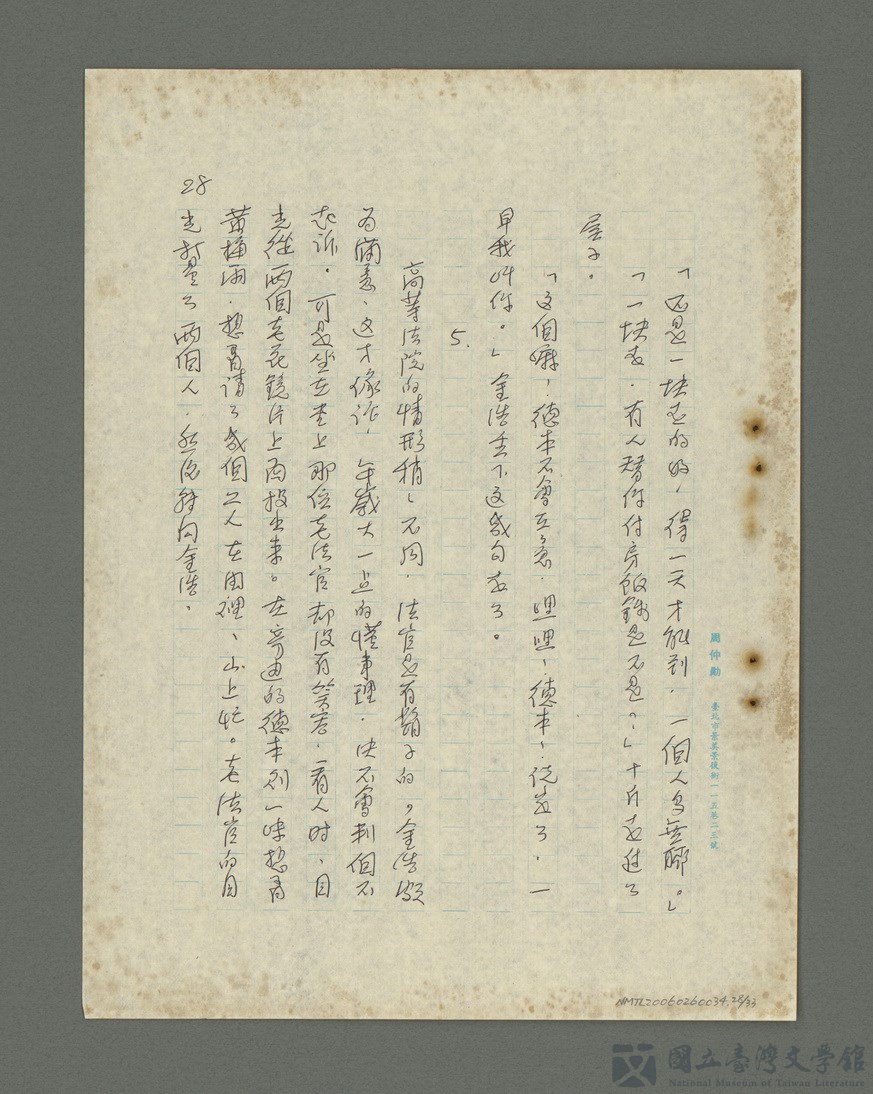 「還是一塊走的好,得一天才能到,一個人多無聊。」
「一塊走,有人替你付房飯錢是不是?」十斤走進了
屋子。
「這個嘛,德本不會在意,嘿嘿,德本,說定了,一
早我叫你。」金浩丟下這幾句走了。
5.
高等法院的情形稍稍不同,法官是有鬍子的,金浩頗
為滿意,這才像話,年歲大一點的懂事理,決不會判個不
起訴。可是坐在堂上那位老法官却沒有笑容,看人時,目
光從兩個老花鏡片上面投出來。在旁邊的德本則一味想著
黃梅雨,想著請了幾個工人在田裡、山上忙。老法官的目
光打量了兩個人,然後轉向金浩,
28
周仲勳
臺北市景美景後街一一五巷二三號
NMTL20060260034.28/33
國立臺灣文學館
National Museum of Taiwan Literature